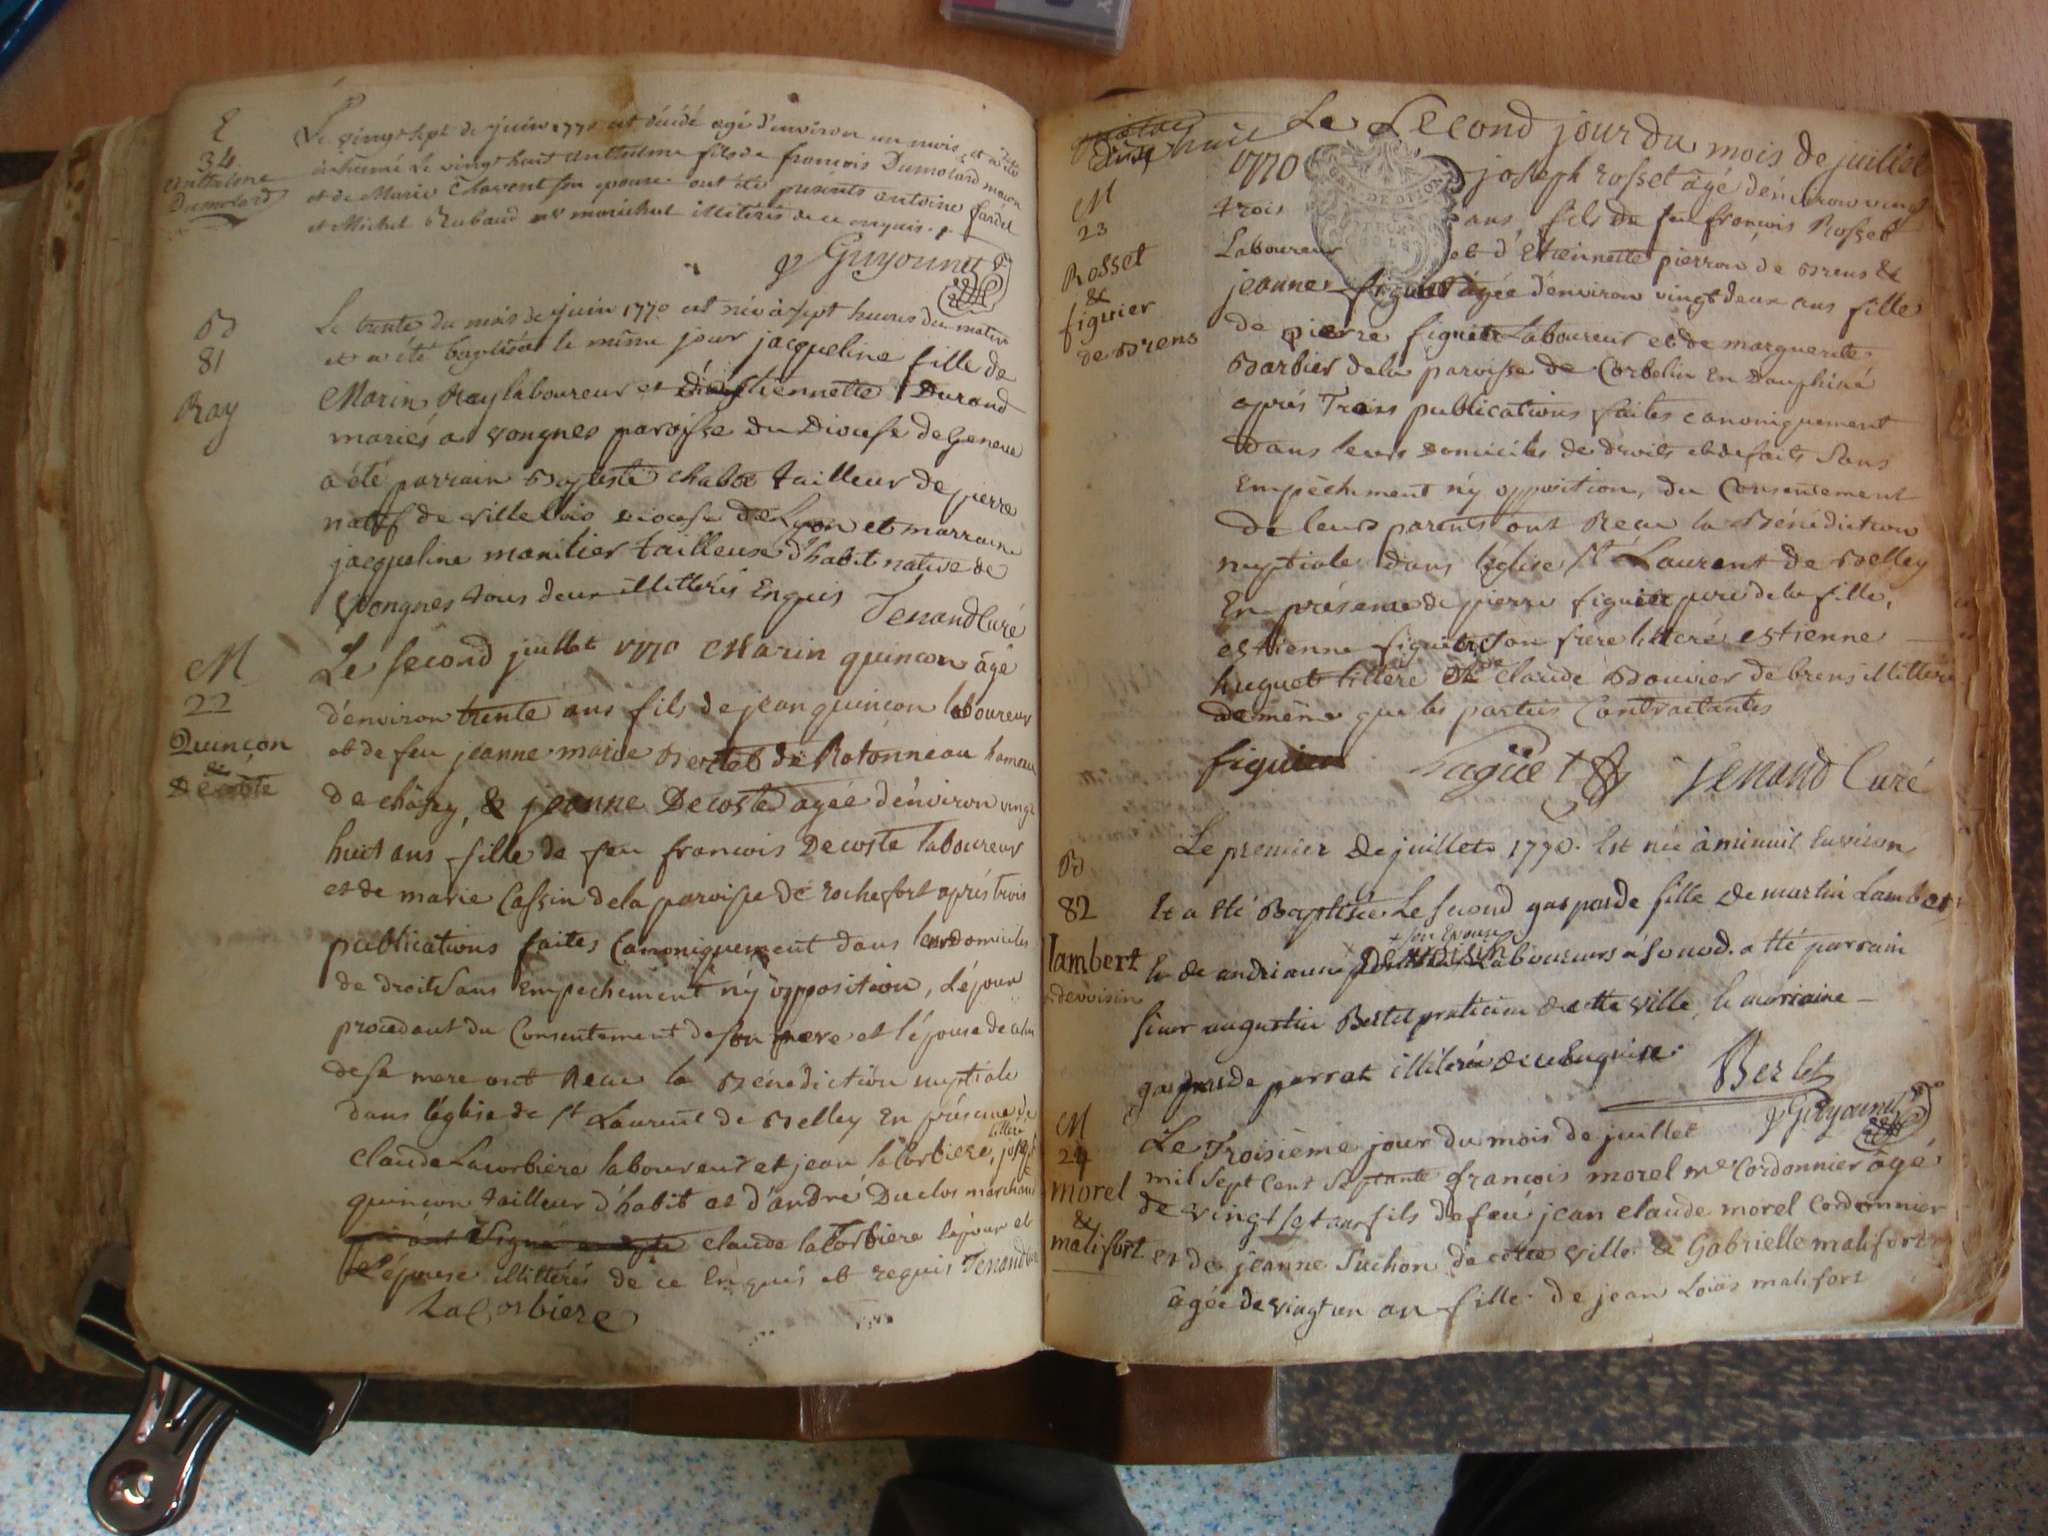 E
34
Anthelme
Dumolard
Le vingt sept de juin 1770 est décédé agé d'environ un mois et a été
inhumé Le vingt huit anthelme fils de francois Dumolard maçon
et de Marie Chavent son epouse ont été présents antoine fardel
et Michel Rubaud illitérés de ce enquis.
Guyounet
B
81
Ray
Le trente du mois de juin 1770 est née à sept heures du matin
et a été baptisée le même jour jacqueline fille de
Marin Ray laboureur et d'estiennette Durand
mariés a vongnes paroisse du Diocese de Geneve
a été parrain Baptiste chabot tailleur de pierre
natif de ville bois diocese de Lyon et marraine
jacqueline monitier tailleuse d'habit native de
Vongnes tous deux illittérés Enquis Tenand Curé
M
22
Quinçon
&
Decoste
Le second juillet 1770 Marin quincon âgé
d'environ trente ans fils de jean quinçon laboureur
et de feu jeanne marie Bertet de Rotonneau hameau
de chasey, & jeanne Decoste agée d'environ vingt
huit ans fille de feu francois Decoste laboureur
et de marie Cassin dela paroisse de rochefort aprés trois
publications faites Canoniquement dans leurs domiciles
de droit Sans Empechement n'y opposition, L'époux
procedant du Consentement de son pere et l'épouse de celui
de sa mere ont Recu la Bénédiction nuptiale
dans l'église de St Laurent de Belley En présence de
claude Lacorbiere laboureur et jean laCorbiere, littéré joseph
quincon tailleur d'habit et d'andré Duclos marchand
claude laCorbiere l'époux et
L'épouse illittérés de ce Enquis et requis Tenand Curé
LaCorbiere
dix huit
M
23
Rosset
&
figuier
de Brens
Le Second jour du mois de juillet
1770
GEN. DE DIJON
joseph rosset âgé d'environ vingt
trois ans, fils du feu francois Rosset
Laboureur et d'Etiennette pierron de Brens &
jeanne figuier agée d'environ vingt deux ans fille
de pierre figuier Laboureur et de marguerite
Barbier dela paroisse de Corbelin En Dauphiné
aprés Trois publications faites canoniquement
Dans leurs Domiciles de droits et de faits Sans
Empêchement n'y opposition, du Consentement
de leurs parents ont Recu la Bénédiction
nuptiale dans l'église St Laurent de Belley
En présence de pierre figuier pere de la fille,
estienne figuier son frere litteré estienne
huguet littéré & de claude Bouvier de brens illittéré
de même que les parties Contractantes
figuier huguet Tenand Curé
B
82
lambert
devoisin
Le premier de juillet 1770. Est née à minuit Environ
Et a Eté Baptisée Le second gasparde fille de martin Lambert
+ son Epouse
Et de andrianne DEVOISIN Laboureurs à Sonod. a été parrain
sieur augustin Bertet praticien de cette ville, le marraine
gasparde perrot illitérée de ce Enquise.
Berlet
Guyounet
M
24
morel
&
malifort
Le Troisième jour du mois de juillet
mil Sept Cent Septante francois morel me Cordonnier âgé
de vingt sept ans fils de feu jean claude morel Cordonnier
et de jeanne Suchon de cette ville & Gabrielle malifort
âgée de vingt un an fille de jean Loüis malifort